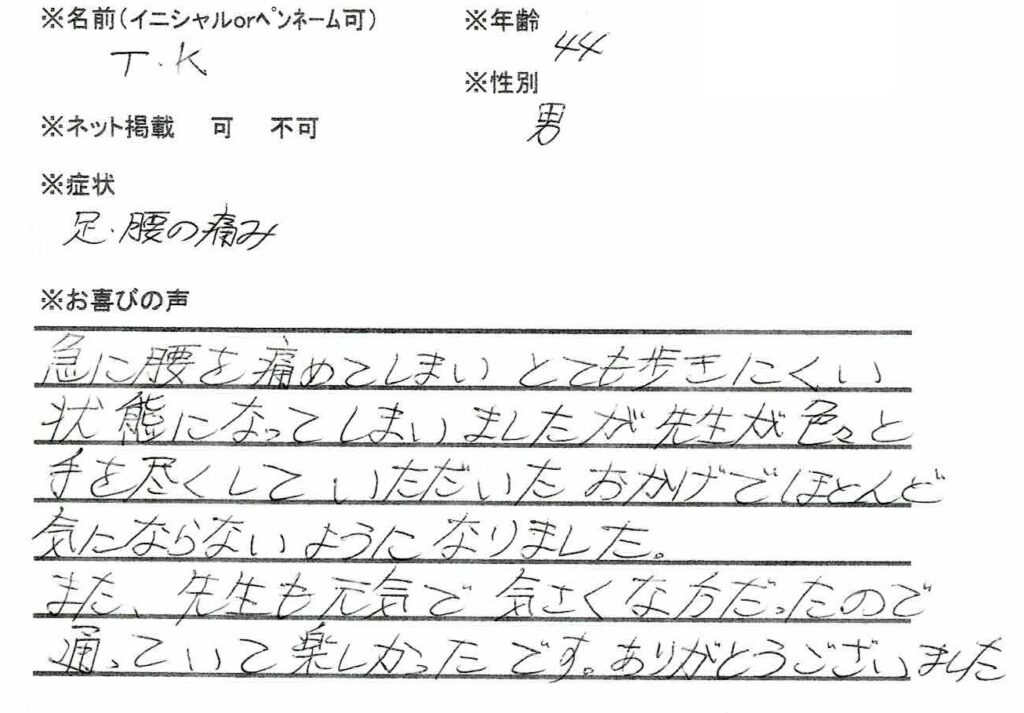 ※名前(イニシャルorペンネーム可)
T.K
※年齢
44
※性別
男
※ネット掲載 可 不可
※症状
足・腰の痛み
※お喜びの声
急に腰を痛めてしまい とても歩きにくい
状態になってしまいましたが先生が色々と
手を尽くしていただいたおかげでほとんど
気にならないようになりました。
また、先生も元気で気さくな方だったので
通っていて楽しかったです。ありがとうございました